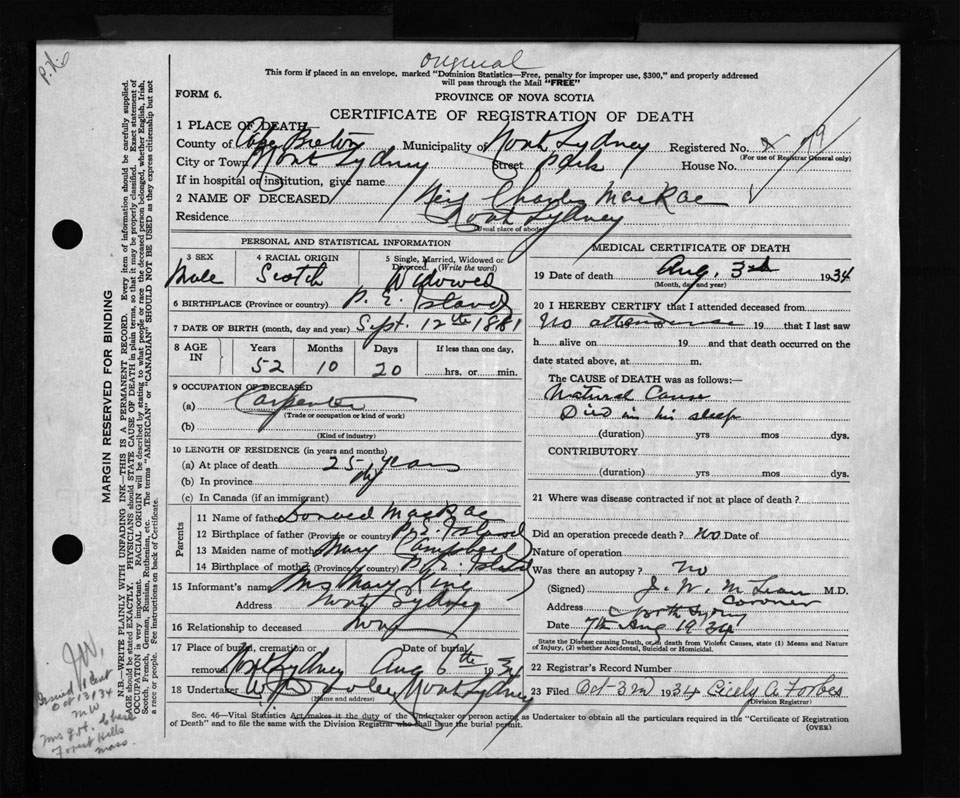 Original
This form if placed in an envelope, marked "Dominion Statistics—Free, penalty for improper use, $300," and properly addressed
will pass through the Mail "FREE"
FORM 6.
PROVINCE OF NOVA SCOTIA
CERTIFICATE OF REGISTRATION OF DEATH
1 PLACE OF DEATH
County of Cape Breton Municipality of North Sydney Registered No.
(For use of Registrar General only)
City or Town North Sydney Street Park House No.
If in hospital or institution, give name
2 NAME OF DECEASED Neil Charles MacRae
Residence North Sydney
(Usual place of abode)
PERSONAL AND STATISTICAL INFORMATION
3 SEX Male
4 RACIAL ORIGIN Scotch
5 Single, Married, Widowed or Divorced. (Write the word) Widowed
6 BIRTHPLACE (Province or country) P. E. Island
7 DATE OF BIRTH (month, day and year) Sept. 12th 1881
8 AGE IN Years 52 Months 10 Days 20 If less than one day, hrs. or min.
9 OCCUPATION OF DECEASED
(a) Carpenter
(Trade or occupation or kind of work)
(b)
(Kind of industry)
10 LENGTH OF RESIDENCE (in years and months)
(a) At place of death 25 years
(b) In province
(c) In Canada (if an immigrant)
Parents
11 Name of father MacRae
12 Birthplace of father (Province or country) P. E. Island
13 Maiden name of mother Mary Campbell
14 Birthplace of mother (Province or country) P. E. Island
15 Informant's name Mrs Mary King
Address North Sydney
16 Relationship to deceased
17 Place of burial, cremation or removal North Sydney Date of burial Aug 6th 1934
18 Undertaker North Sydney
(Name and address)
MEDICAL CERTIFICATE OF DEATH
19 Date of death Aug. 3rd 1934
(Month, day and year)
20 I HEREBY CERTIFY that I attended deceased from
No attendance 19 that I last saw
h alive on 19 and that death occurred on the
date stated above, at m.
The CAUSE of DEATH was as follows:
Natural Cause
Died in his sleep
(duration) yrs mos dys.
CONTRIBUTORY
(duration) yrs mos dys.
21 Where was disease contracted if not at place of death ?
Did an operation precede death ? No Date of
Nature of operation
Was there an autopsy ? No
(Signed) J. W. McLean M.D.
Coroner
Address North Sydney
Date 7th Aug 1934
State the Disease causing Death, or in death from Violent Causes, state (1) Means and Nature
of Injury, (2) whether Accidental, Suicidal or Homicidal.
22 Registrar's Record Number
23 Filed Oct 3rd 1934 Cicely A. Forbes
(Division Registrar)
Sec. 46—Vital Statistics Act makes it the duty of the Undertaker or person acting as Undertaker to obtain all the particulars required in the "Certificate of Registration
of Death" and to file the same with the Division Registrar who shall issue the burial permit.
(OVER)
MARGIN RESERVED FOR BINDING
N.B.—WRITE PLAINLY WITH UNFADING INK—THIS IS A PERMANENT RECORD. Every item of information should be carefully supplied.
AGE should be stated EXACTLY. PHYSICIANS should STATE CAUSE OF DEATH in plain terms, so that it may be properly classified. Exact statement of
OCCUPATION is very important. RACIAL ORIGIN will be described by stating to what people or race the deceased person belonged, whether English, Irish,
Scotch, French, German, Russian, Ruthenian, etc. The terms "AMERICAN" or "CANADIAN" SHOULD NOT BE USED as they express citizenship but not
a race or people. See instructions on back of Certificate.
Issued 1 Cert
Oct 13/34
MW
Forest Hills
Mass.